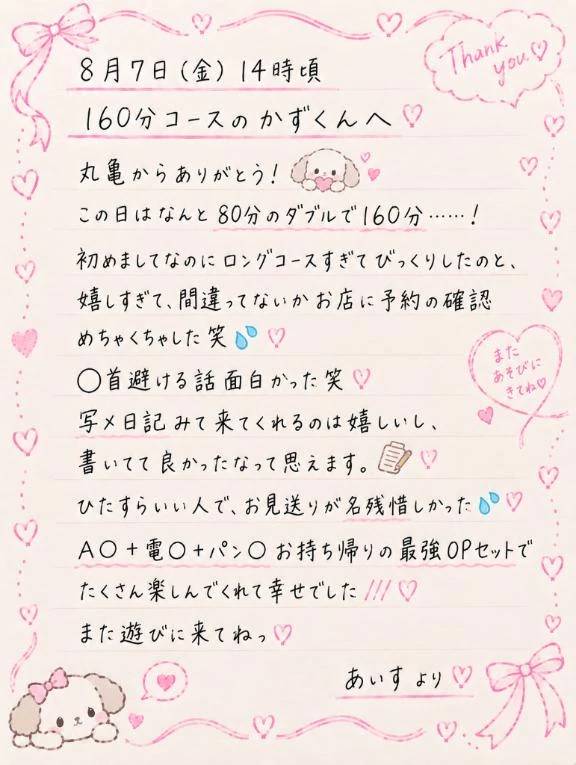 Thank you♡
8月7日(金)14時頃
160分コースのかずくんへ♡
丸亀からありがとう!
この日はなんと80分のダブルで160分……!
初めましてなのにロングコースすぎてびっくりしたのと、
嬉しすぎて、間違ってないかお店に予約の確認
めちゃくちゃした笑💦♡
◯首避ける話面白かった笑♡
写メ日記みて来てくれるのは嬉しいし、
書いてて良かったなって思えます。📝♡
ひたすらいい人で、お見送りが名残惜しかった💦♡
A◯+電◯+パン◯お持ち帰りの最強OPセットで
たくさん楽しんでくれて幸せでした///♡
また遊びに来てねっ♡
あいすより♡
また
あそびに
きてね♡